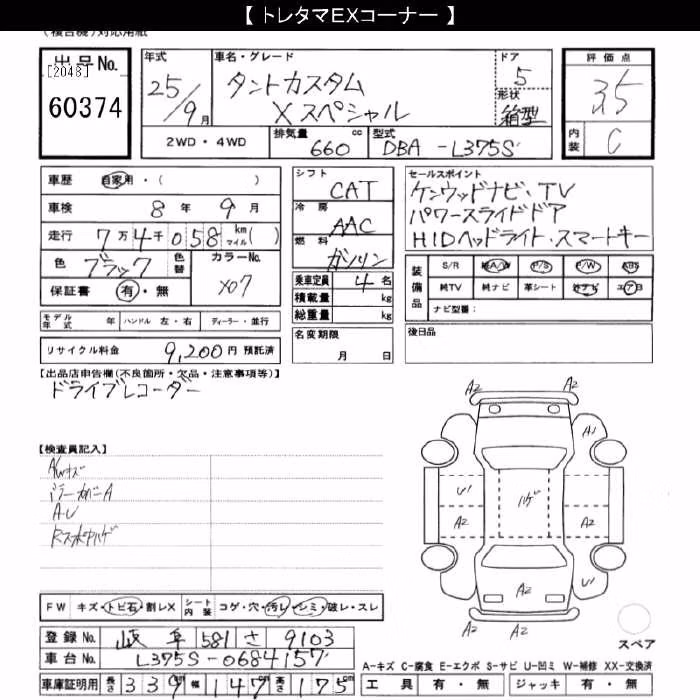 【 トレタマEXコーナー 】
(複合機)対応用紙
出品No.
[2048]
60374
年式
25/9月
車名・グレード
タントカスタム
Xスペシャル
ドア
5
形状
箱型
評価点
3.5
内装
C
2WD・4WD
排気量 660 cc
型式 DBA-L375S
車歴 自家用・( )
車検 8年 9月
走行 7万4千058 km マイル( )
色 ブラック 色替 カラーNo. X07
保証書 有・無
モデル年式 年 ハンドル 左・右 ディーラー・並行
リサイクル料金 9,200円 預託済
シフト
CAT
冷房
AAC
燃料
ガソリン
乗車定員 4名
積載量 kg
総重量 kg
名変期限
月 日
セールスポイント
ケンウッドナビ、TV
パワースライドドア
HIDヘッドライト・スマートキー
装備品
S/R 純A/W P/S P/W ABS
純TV 純ナビ 革シート 社ナビ エアB
ナビ型番:
後日品
【出品店申告欄(不良箇所・欠品・注意事項等)】
ドライブレコーダー
【検査員記入】
AWキズ
ミラーカバーA
A・U
A2 A2
A1
U1 A1
ハゲ
A2 A2
U1
A2
A2 A2
スペア
FW キズ・トビ石・割レX シート内装 コゲ・穴・汚レ・シミ・破レ・スレ
登録No. 岐阜 581 さ 9103
車台No. L375S-0684157
車庫証明用 長さ 339 cm 幅 147 cm 高さ 175 cm
A-キズ C-腐食 E-エクボ S-サビ U-凹ミ W-補修 XX-交換済
工具 有・無 ジャッキ 有・無